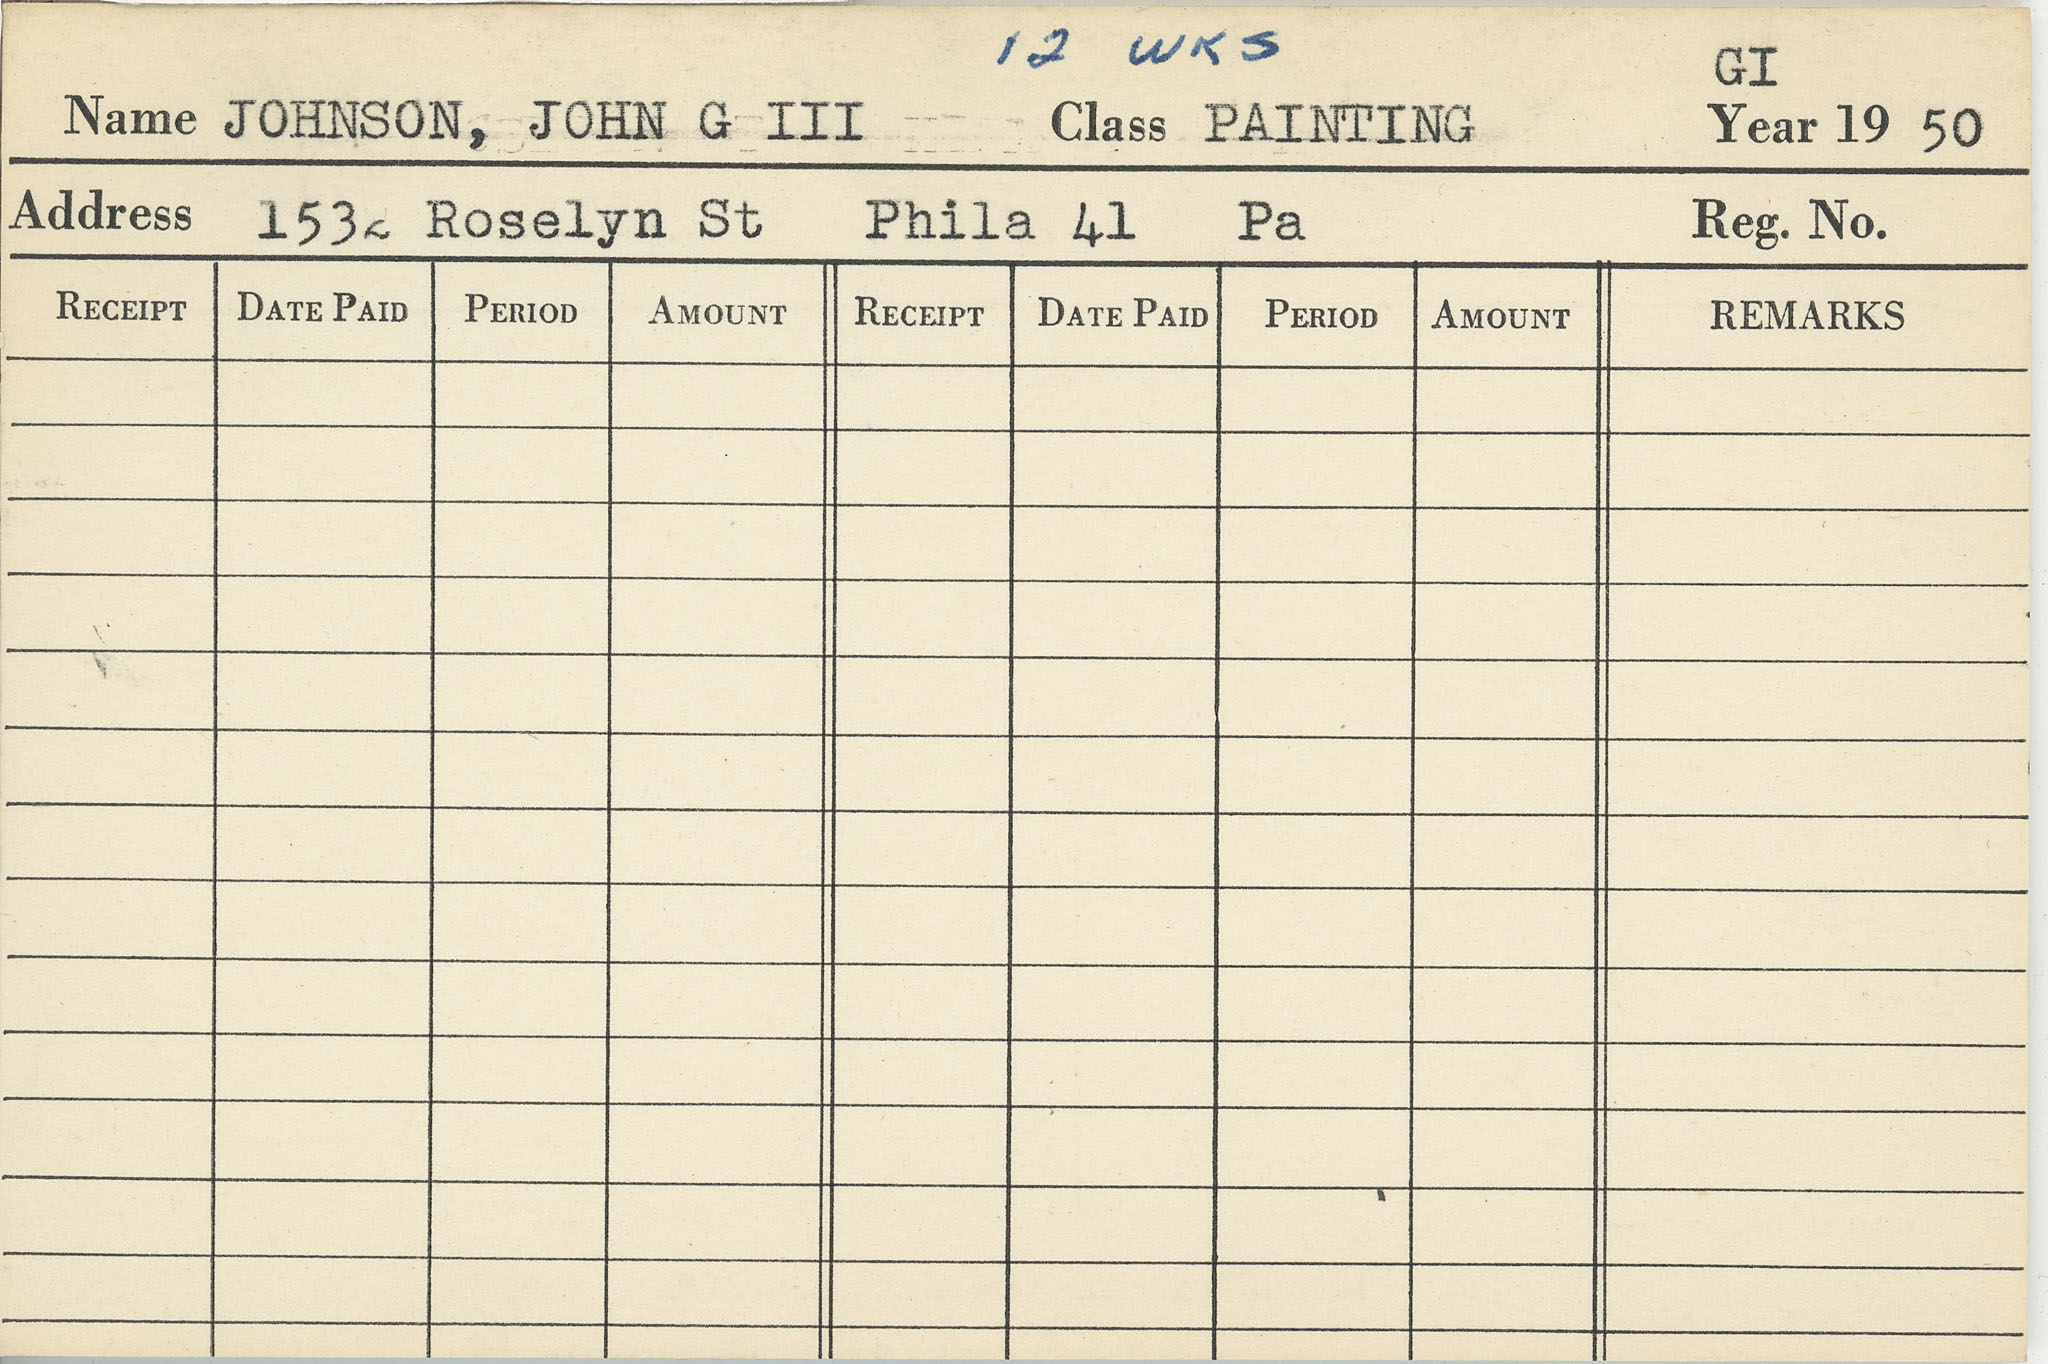 12 WKS
GI
Name JOHNSON, JOHN G III Class PAINTING Year 19 50
Address 1532 Roselyn St Phila 41 Pa Reg. No.
RECEIPT DATE PAID PERIOD AMOUNT RECEIPT DATE PAID PERIOD AMOUNT REMARKS